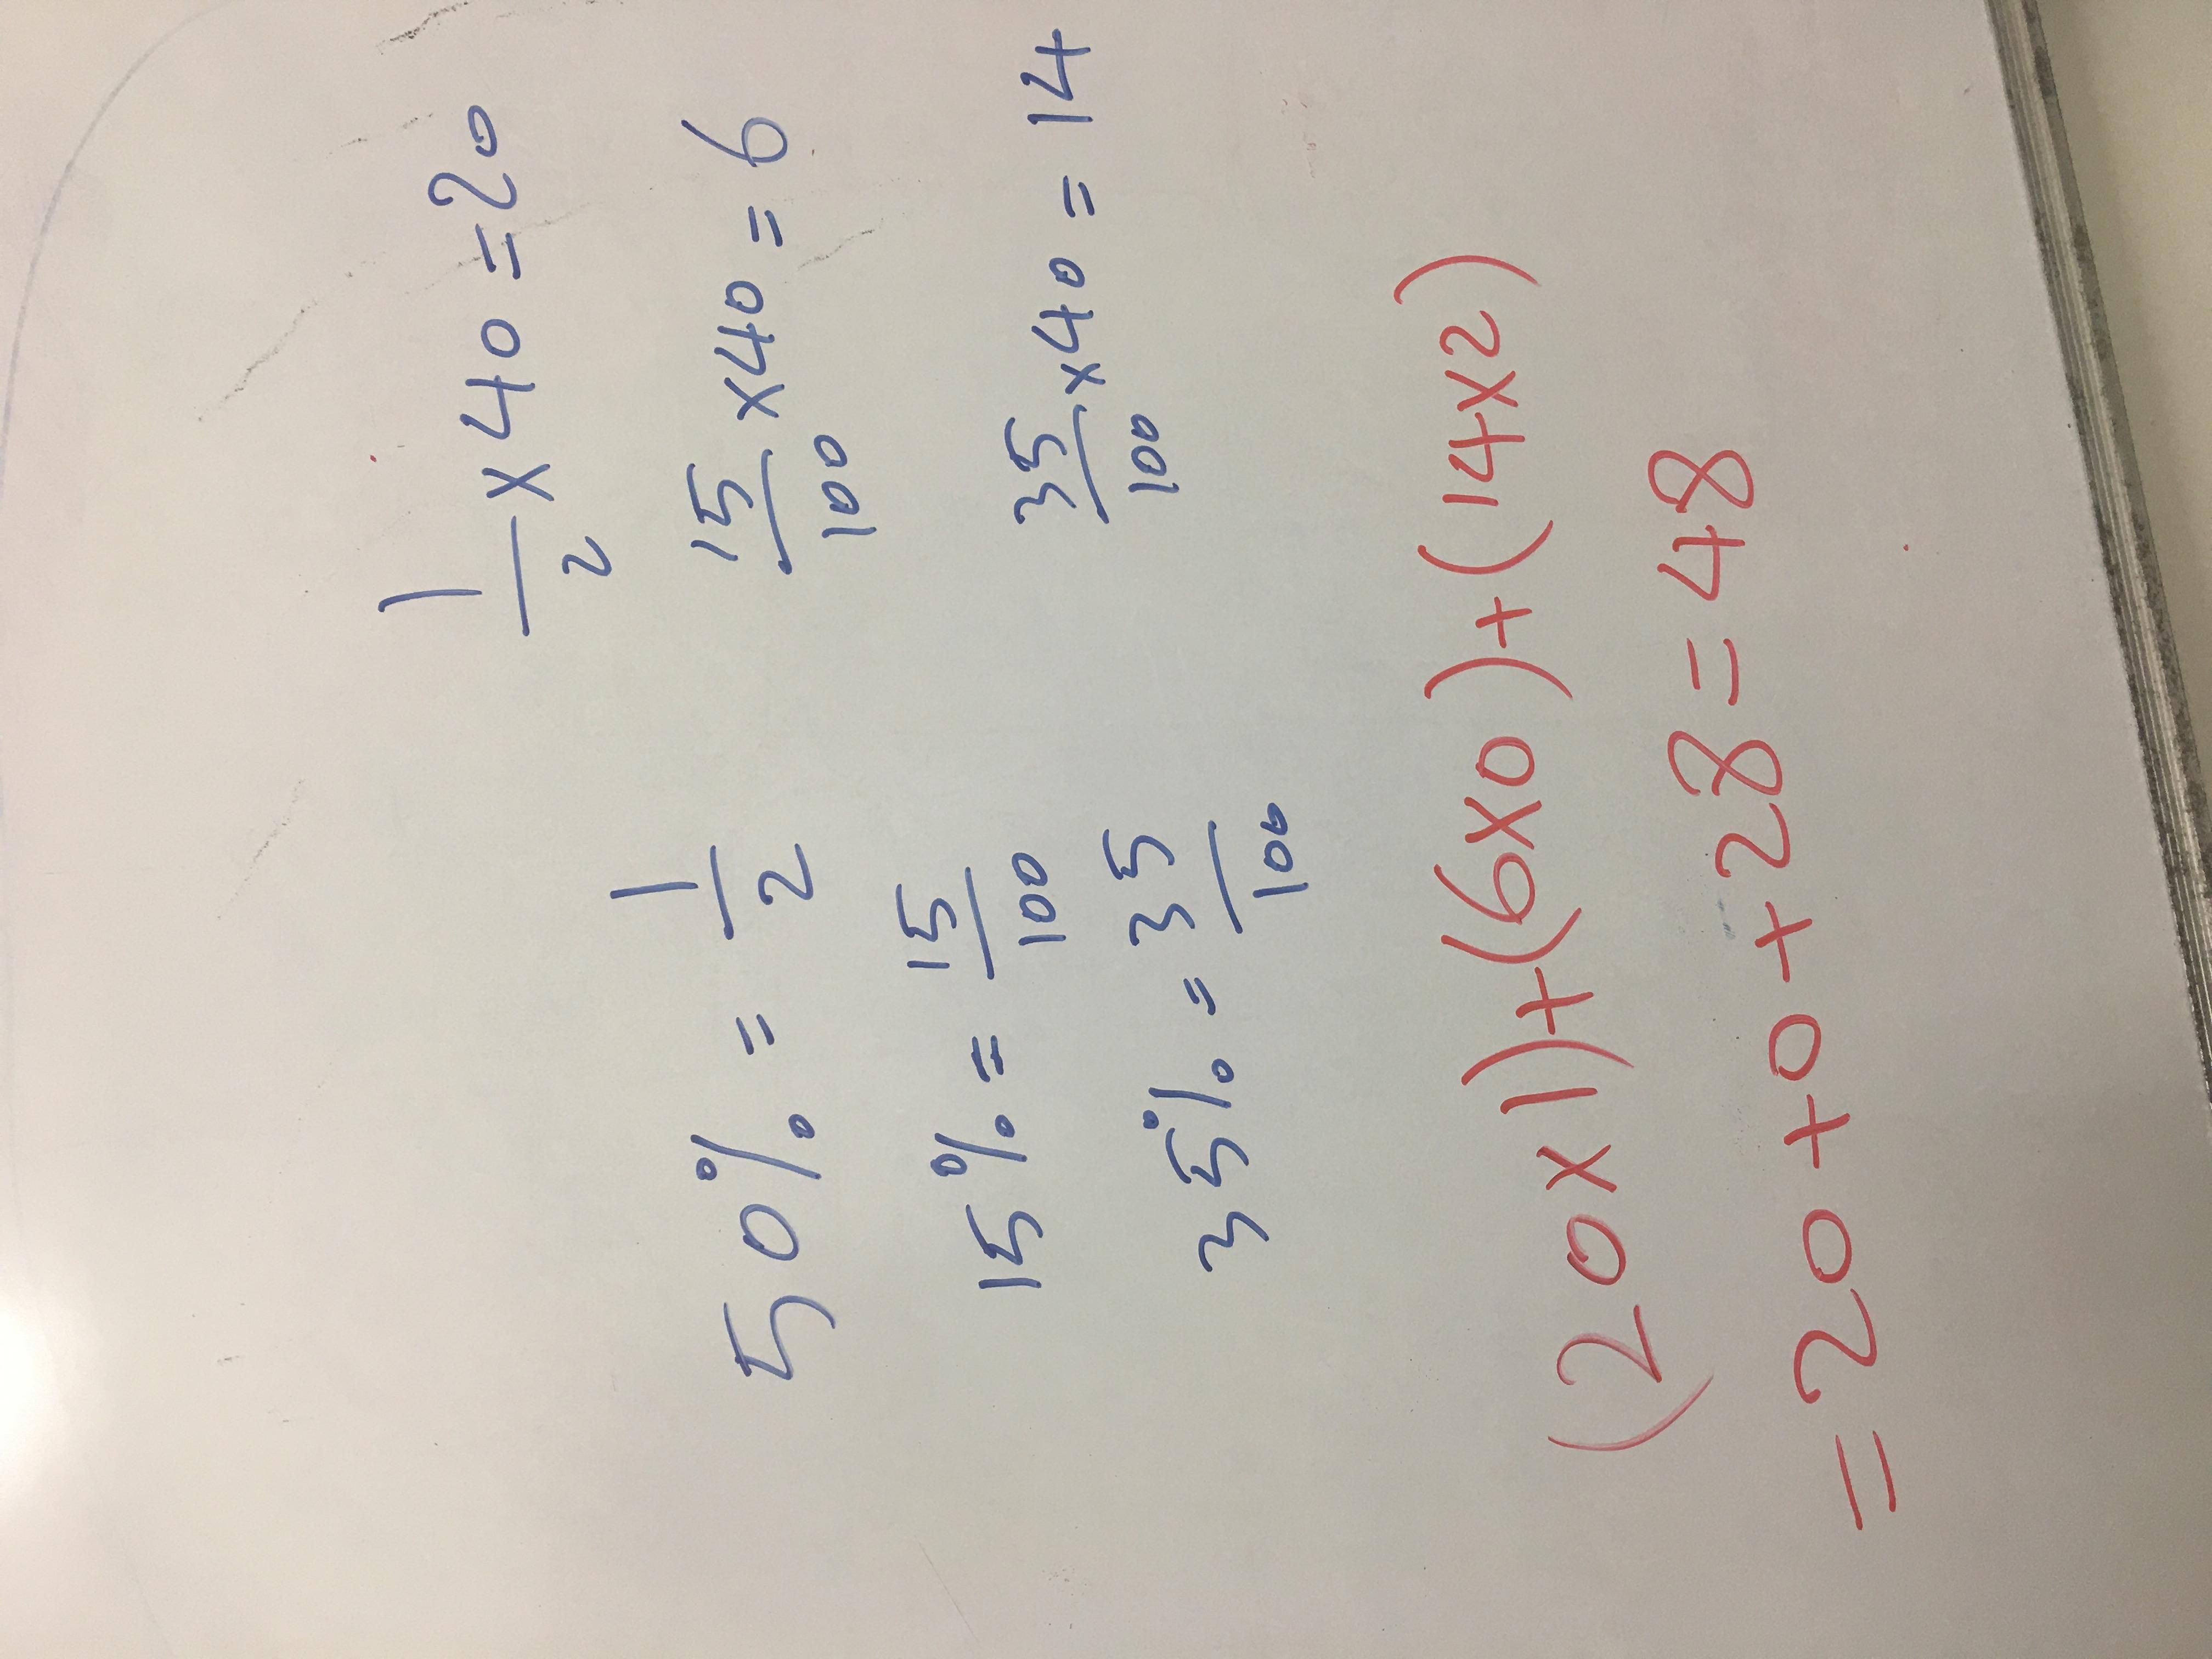 50% = 1/2
1/2 x 40 = 20
15% = 15/100
15/100 x 40 = 6
35% = 35/100
35/100 x 40 = 14
(20 x 1) + (6 x 0) + (14 x 2)
= 20 + 0 + 28 = 48